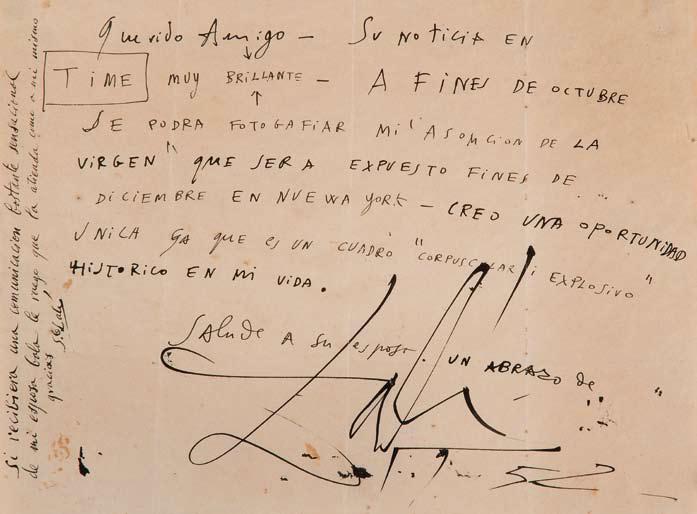 Querido Amigo — Su NOTICIA EN
TIME MUY BRILLANTE — A FINES DE OCTUBRE
SE PODRA FOTOGAFIAR MI "ASOMCION DE LA
VIRGEN" QUE SERA EXPUESTO FINES DE
DICIEMBRE EN NUEWA YORK — CREO UNA OPORTUNIDAD
UNICA YA QUE ES UN CUADRO "CORPUSCULAR i EXPLOSIVO"
HISTORICO EN MI VIDA.
SALUDE A su esposa. UN ABRAZO de
Dalí
52
Si recibiera una comunicacion bastante sensacional
de mi esposa Gala le ruego que la atienda como a mi mismo
gracias S. Dalí